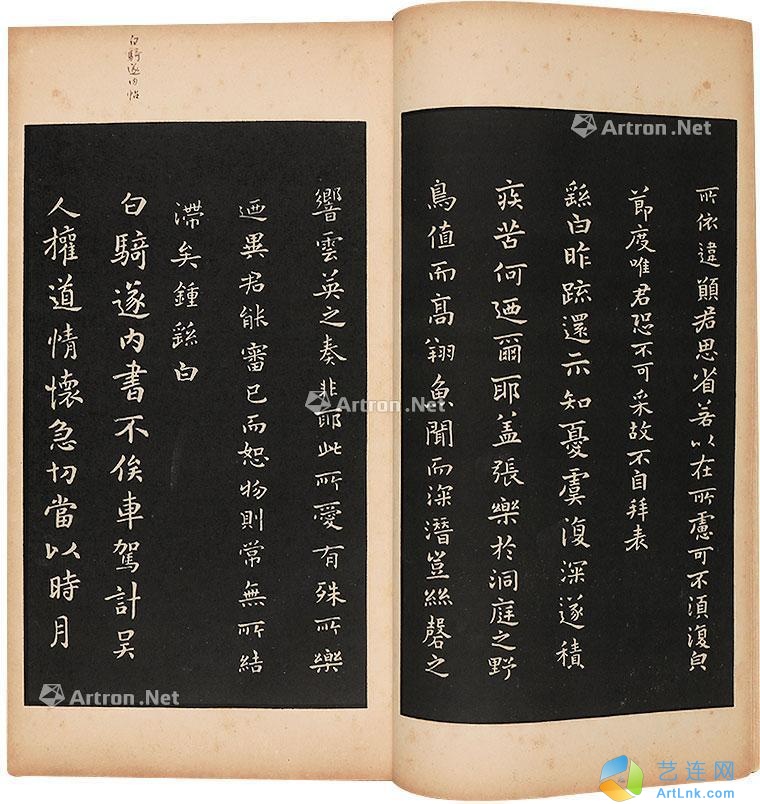 所依違願君思省若以在所慮可不須復皃
節度唯君恐不可采故不自拜表
繇白昨疏還示知憂虞復深遂積
疾苦何迺爾耶盖張樂於洞庭之野
鳥值而高翔魚聞而深潛豈絲磬之
白騎遂内帖
響雲英之奏非耶此所愛有殊所樂
迺異君能審己而恕物則常無所結
滯矣鍾繇白
白騎遂内書不俟車駕計吴
人權道情懷急切當以時月
Artron.Net
Artron.Net
Artron.Net
艺连网
ArtLnk.com